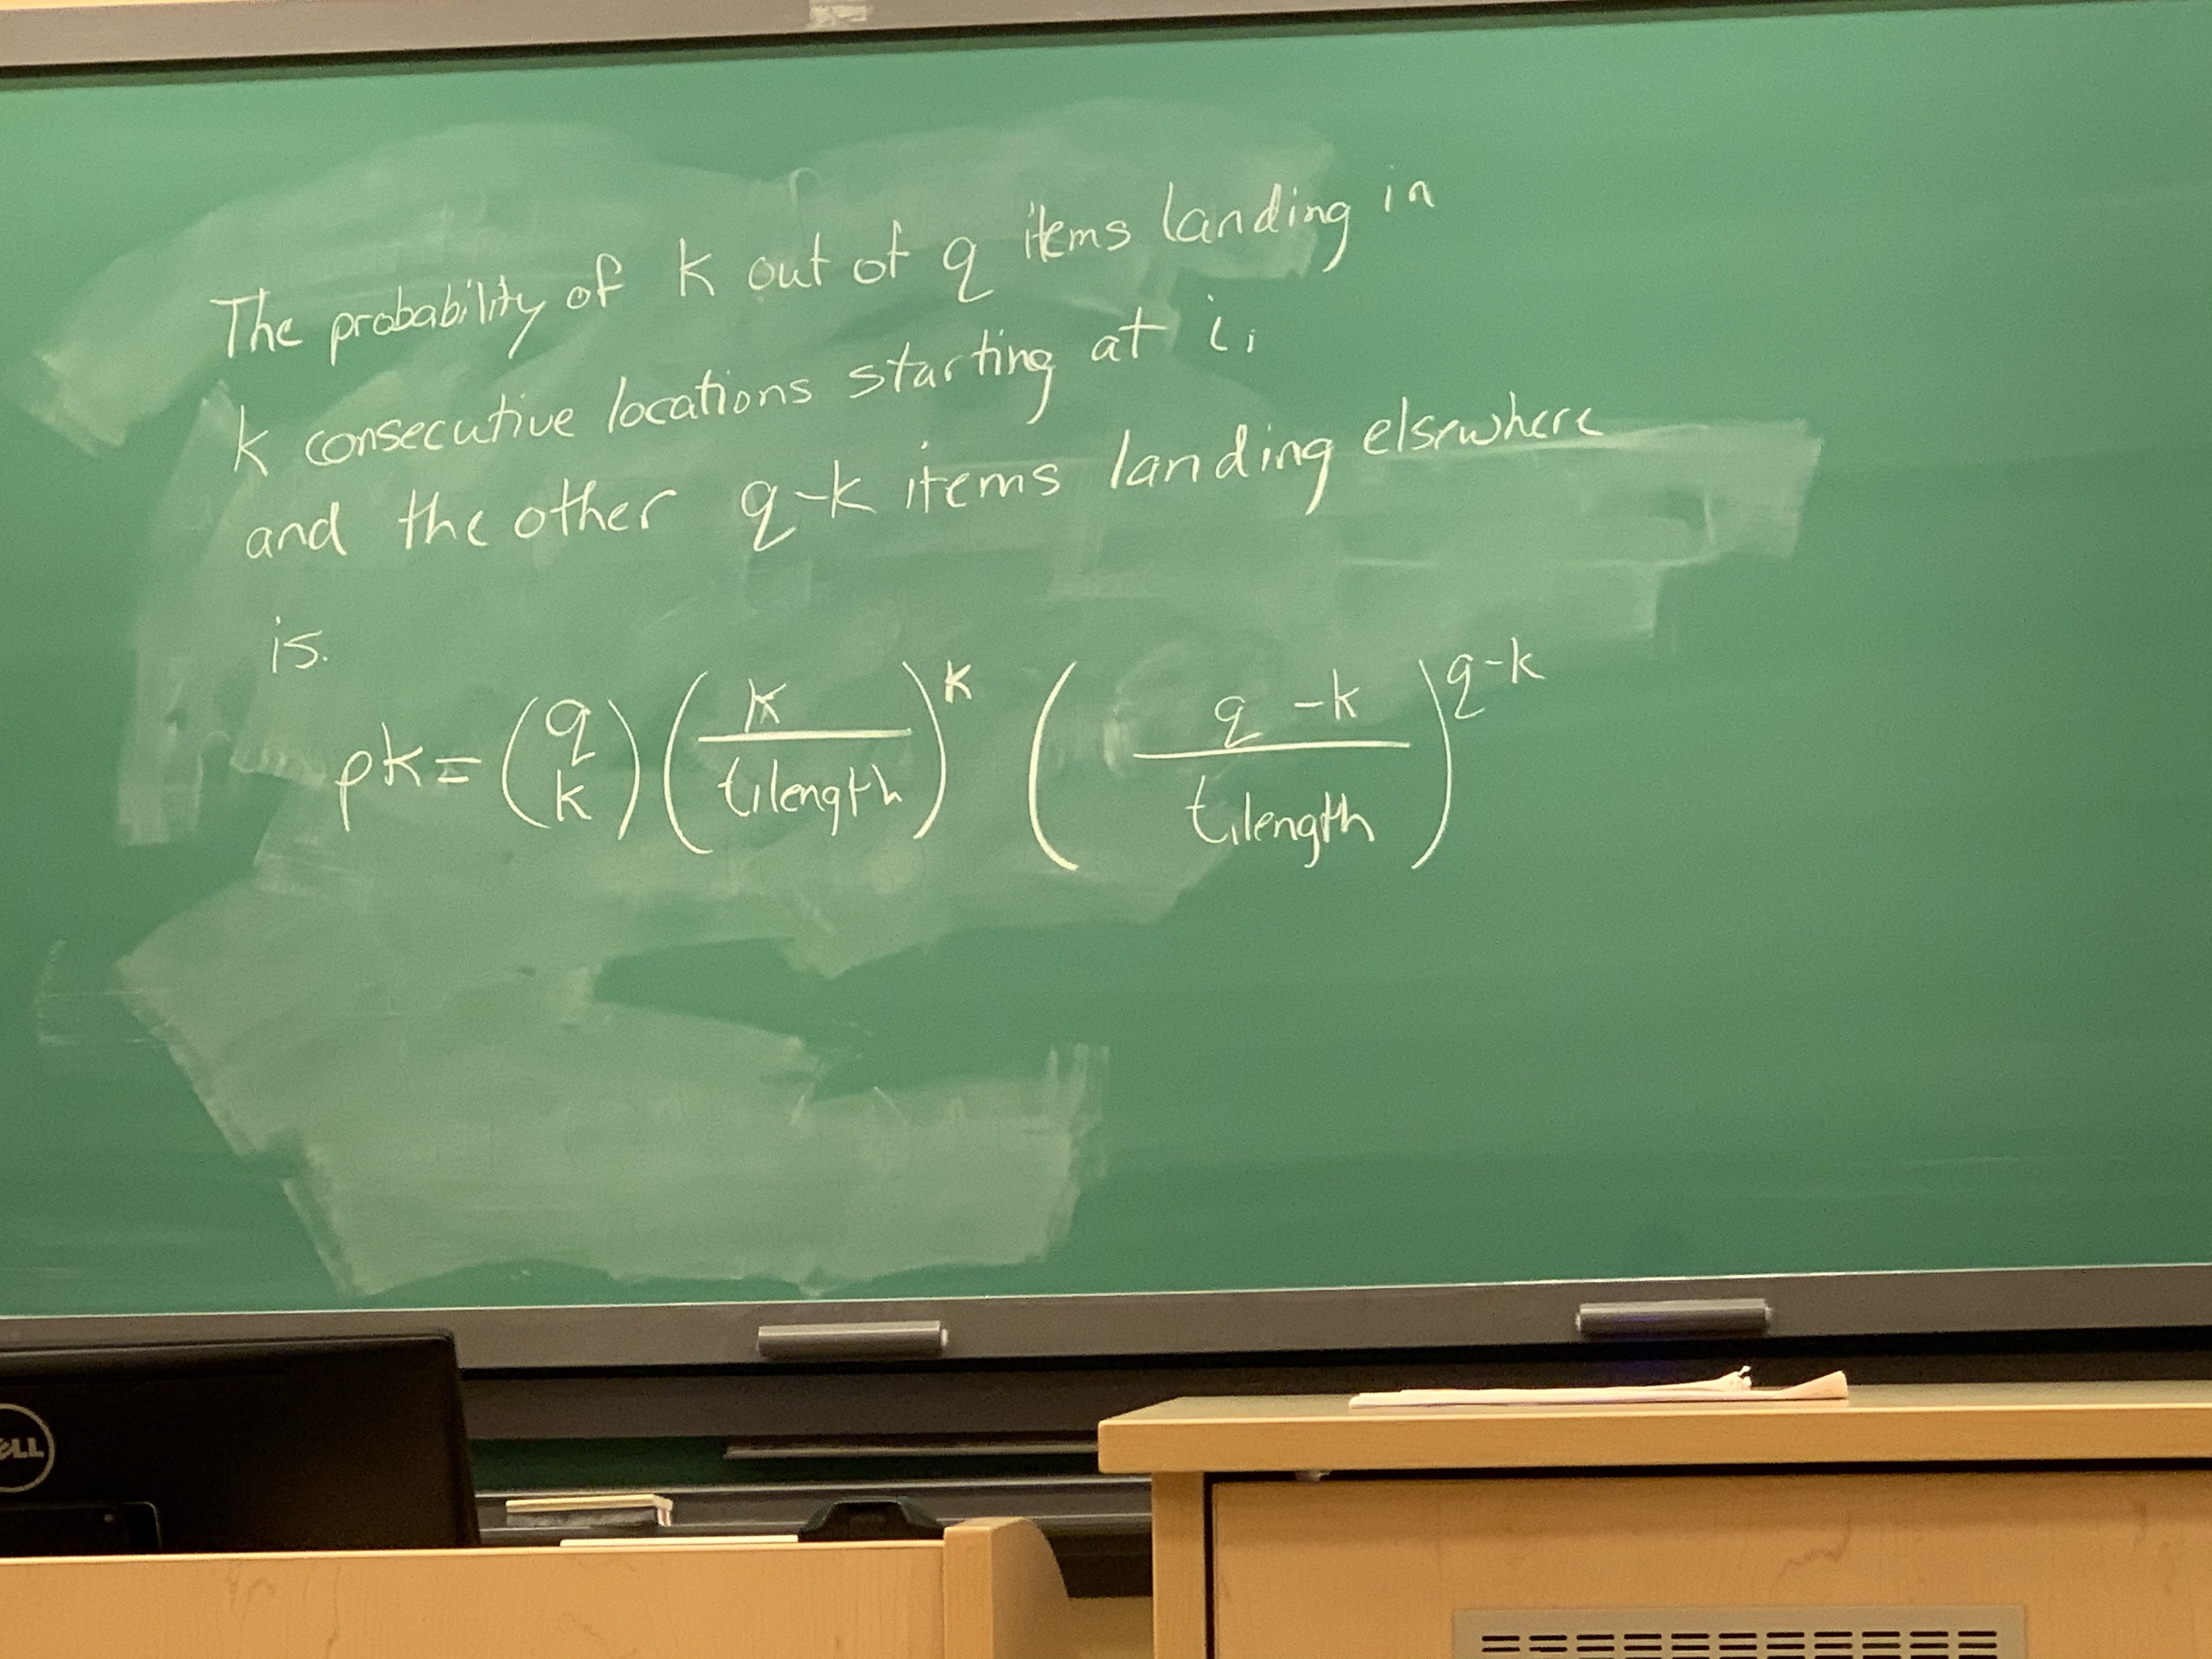 The probability of k out of q items landing in
k consecutive locations starting at i,
and the other q-k items landing elsewhere
is.
pk = (q k) (k / t.length)^k (q - k / t.length)^q-k